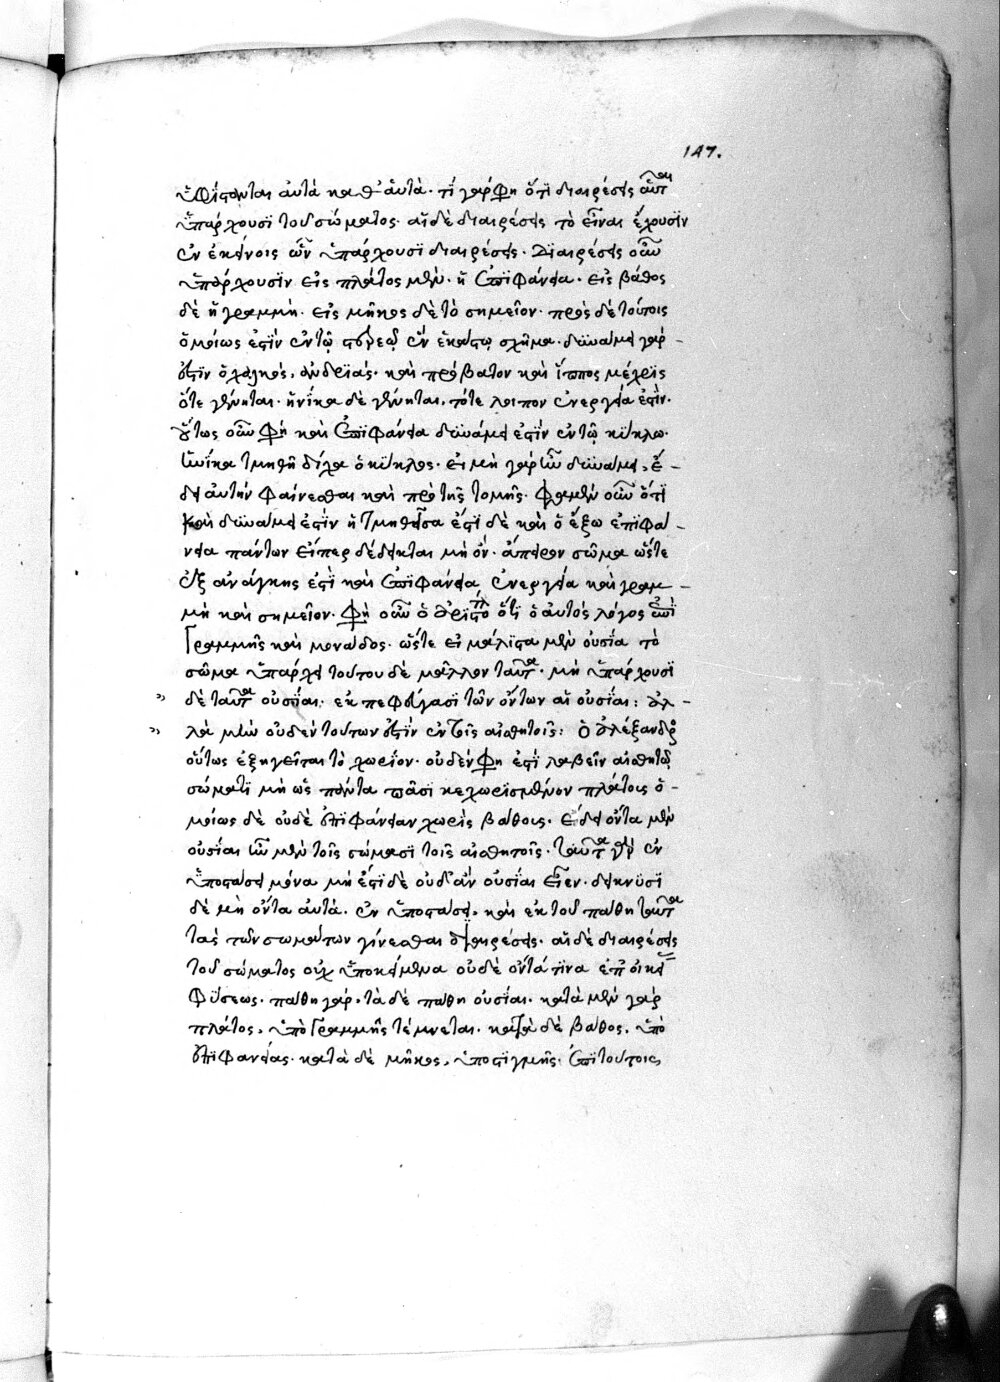 147.
ὑφίστανται αὐτὰ καθ' αὑτά· τί γάρ φη ὅτι διαιρέσεις αὗται
ὑπάρχουσι τοῦ σώματος· αἱ δὲ διαιρέσεις τὸ εἶναι ἔχουσιν
ἐν ἐκείνοις ὧν ὑπάρχουσι διαιρέσεις· διαιρέσεις οὖν
ὑπάρχουσιν εἰς πλάτος μὲν· ἡ ἐπιφάνεια· εἰς βάθος
δὲ ἡ γραμμή· εἰς μῆκος δὲ τὸ σημεῖον· πρὸς δὲ τούτοις
ὁμοίως ἐστὶν ἐν τῷ στερεῷ ἓν ἕκαστω σχῆμα· δυνάμει γάρ
ἐστιν ὁ χαλκός, ἀνδριάς· καὶ πρόβατον καὶ ἵππος μέχρις
ὅτε γένηται· ἡνίκα δὲ γένηται, τότε λοιπον ἐνεργεία ἐστίν·
οὕτως οὖν φὴ καὶ ἐπιφάνεια δυνάμει ἐστὶν ἐν τῷ κύκλω·
ἡνίκα τμηθῆ δίχα ὁ κύκλος· εἰ μὴ γὰρ ἦν δυνάμει, ἔ-
δει αὐτὴν φαίνεσθαι καὶ πρὸ τῆς τομῆς· φαμὲν οὖν ὅτι
καὶ δυνάμει ἐστὶν ἡ τμηθεῖσα ἔστι δὲ καὶ ὁ ἔξω ἐπιφά-
νεια πάντων εἴπερ δέδεικται μὴ ὂν· ἄπειρον σῶμα ὥστε
ἐξ ἀνάγκης ἔστι καὶ ἐπιφάνεια ἐνεργεία καὶ γραμ-
μὴ καὶ σημεῖον· φὴ οὖν ὁ ἀριστο ὅτι ὁ αὐτὸς λόγος ἐπὶ
γραμμῆς καὶ μονάδος· ὥστε εἰ μάλιστα μὲν οὐσία τὸ
σῶμα ὑπάρχει τούτου δὲ μᾶλλον ταῦτα· μὴ ὑπάρχουσι
δὲ ταῦτα οὐσίαι· ἐκπεφεύγασι τῶν ὄντων αἱ οὐσίαι: ἀλ-
λὰ μὴν οὐδὲν τούτων ἐστὶν ἐν τοῖς αἰσθητοῖς: ὁ ἀλέξανδρος
οὕτως ἐξηγεῖται τὸ χωρίον· οὐδέν φη ἐστὶ λαβεῖν αἰσθητῷ
σώματι μὴ ὡς πάντα πᾶσι κεχωρισμένον πλάτοις ὁ-
μοίως δὲ οὐδὲ ἐπιφάνειαν χωρὶς βάθοις· εἰ δὲ ὄντα μὲν
οὐσίαι ἦν μὲν τοῖς σώμασι τοῖς αἰσθητοῖς· ταῦτα γὰρ ἐν
ὑποστάσει μόνα μὴ ἔστι δὲ οὐδ' ἂν οὐσίαι εἶεν· δεικνύσι
δὲ μὴ ὄντα αὐτὰ· ἐν ὑποστάσει, καὶ ἐκ τοῦ πάθη ταῦτα
τὰς τῶν σωμάτων γίνεσθαι διαιρέσεις· αἱ δὲ διαιρέσεις
τοῦ σώματος οὐχ ὑποκείμενα οὐδὲ ὄντα τινα ἐπ' οἰκεί
φύσεως· πάθη γὰρ· τὰ δὲ πάθη οὐσίαι· κατὰ μὲν γὰρ
πλάτος, ὑπὸ γραμμῆς τέμνεται· κατὰ δὲ βάθος, ὑπὸ
ἐπιφανείας· κατὰ δὲ μῆκος, ὑπὸ στιγμῆς· ἐπὶ τούτοις